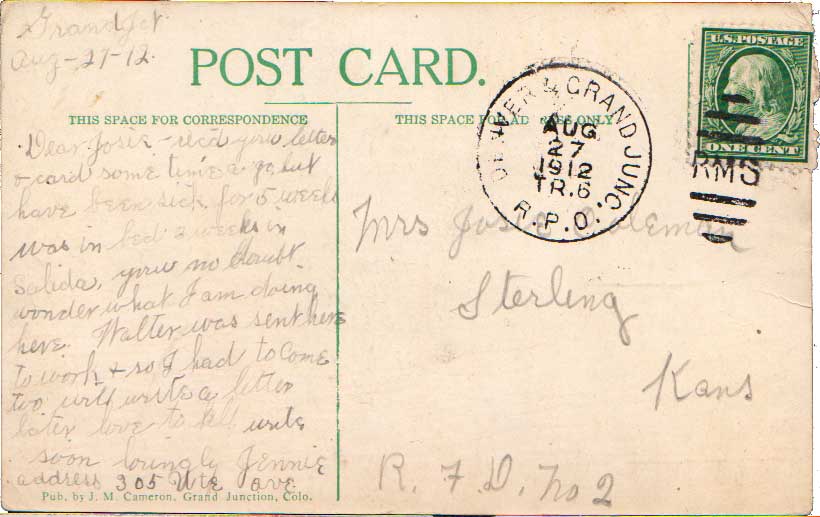 Grand Jct
Aug-27-12.
POST CARD.
THIS SPACE FOR CORRESPONDENCE
THIS SPACE FOR ADDRESS ONLY
Dear Josie - rec'd your letter
& card some time ago but
have been sick for 5 weeks
was in bed 2 weeks in
Salida, you no doubt
wonder what I am doing
here. Walter was sent here
to work & so I had to come
too will write a letter
later love to all write
soon lovingly Jennie
address 305 Ute ave
Pub. by J. M. Cameron, Grand Junction, Colo.
DENVER & GRAND JUNC.
AUG
27
1912
TR.6
R.P.O.
U.S. POSTAGE
ONE CENT
RMS
Mrs Josie Coleman
Sterling
Kans
R. F. D. No 2